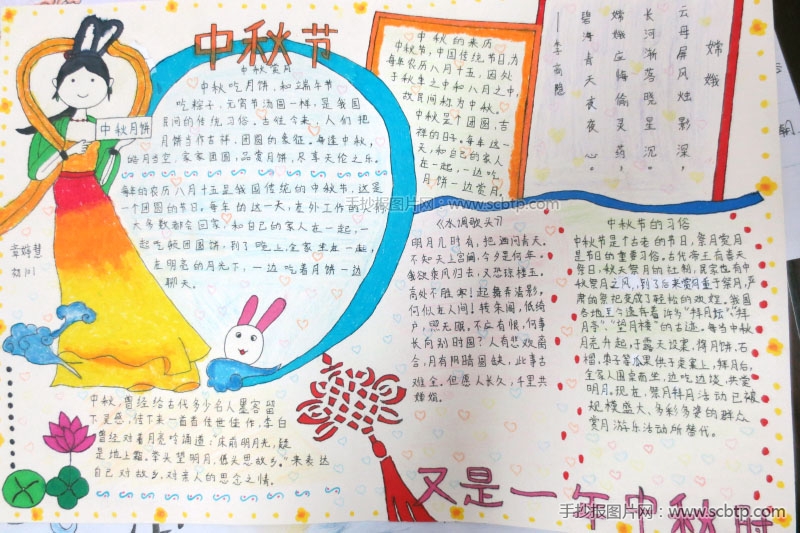 中秋节
中秋赏月
中秋吃月饼，和端午节
吃粽子，元宵节汤圆一样，是我国
民间的传统习俗。古往今来，人们把
月饼当作吉祥，团圆的象征。每逢中秋，
皓月当空，家家团圆，品赏月饼，尽享天伦之乐。
每年的农历八月十五是我国传统的中秋节，这是
一个团圆的节日，每年的这一天，在外工作的人
大多数都会回家，和自己的家人在一起，一
起吃顿团圆饼，到了晚上全家坐在一起，
在明亮的月光下，一边吃着月饼一边
聊天。
中秋月饼
中秋的来历
中秋节，中国传统节日，为
每年农历八月十五，因处
于秋季之中和八月之中，
故民间称为中秋。
中秋是个团圆，吉
祥的日子。每年这一
天，和自己的家人
在一起，一边吃
月饼一边赏月。
嫦娥
云母屏风烛影深，
长河渐落晓星沉。
嫦娥应悔偷灵药，
碧海青天夜夜心。
——李商隐
手抄报图片网：www.scbtp.com
《水调歌头》
明月几时有，把酒问青天。
不知天上宫阙，今夕是何年。
我欲乘风归去，又恐琼楼玉
高处不胜寒！起舞弄清影，
何似在人间！转朱阁，低绮
户，照无眠。不应有恨，何事
长向别时圆？人有悲欢离
合，月有阴晴圆缺，此事古
难全。但愿人长久，千里共
婵娟。
中秋节的习俗
中秋节是个古老的节日，祭月赏月
是节日的重要习俗。古代帝王有春天
祭日，秋天祭月的社制，民家也有中
秋祭月之风，到了后来赏月重于祭月，严
肃的祭祀变成了轻松的欢娱。我国
各地至今遗存着许多“拜月坛”、“拜
月亭”、“望月楼”的古迹。每当中秋
月亮升起，于露天设案，将月饼、石
榴、枣子等瓜果供于桌案上，拜月后，
全家人围桌而坐，边吃边谈，共赏
明月。现在，祭月拜月活动已被
规模盛大、多彩多姿的群众
赏月游乐活动所替代。
中秋，曾经给古代多少名人墨客留
下灵感，传下来一首首传世佳作，李白
曾经对着月亮吟诵道：“床前明月光，疑
是地上霜。举头望明月，低头思故乡。”来表达
自己对故乡，对亲人的思念之情。
又是一年中秋时
手抄报图片网：www.scbtp.com